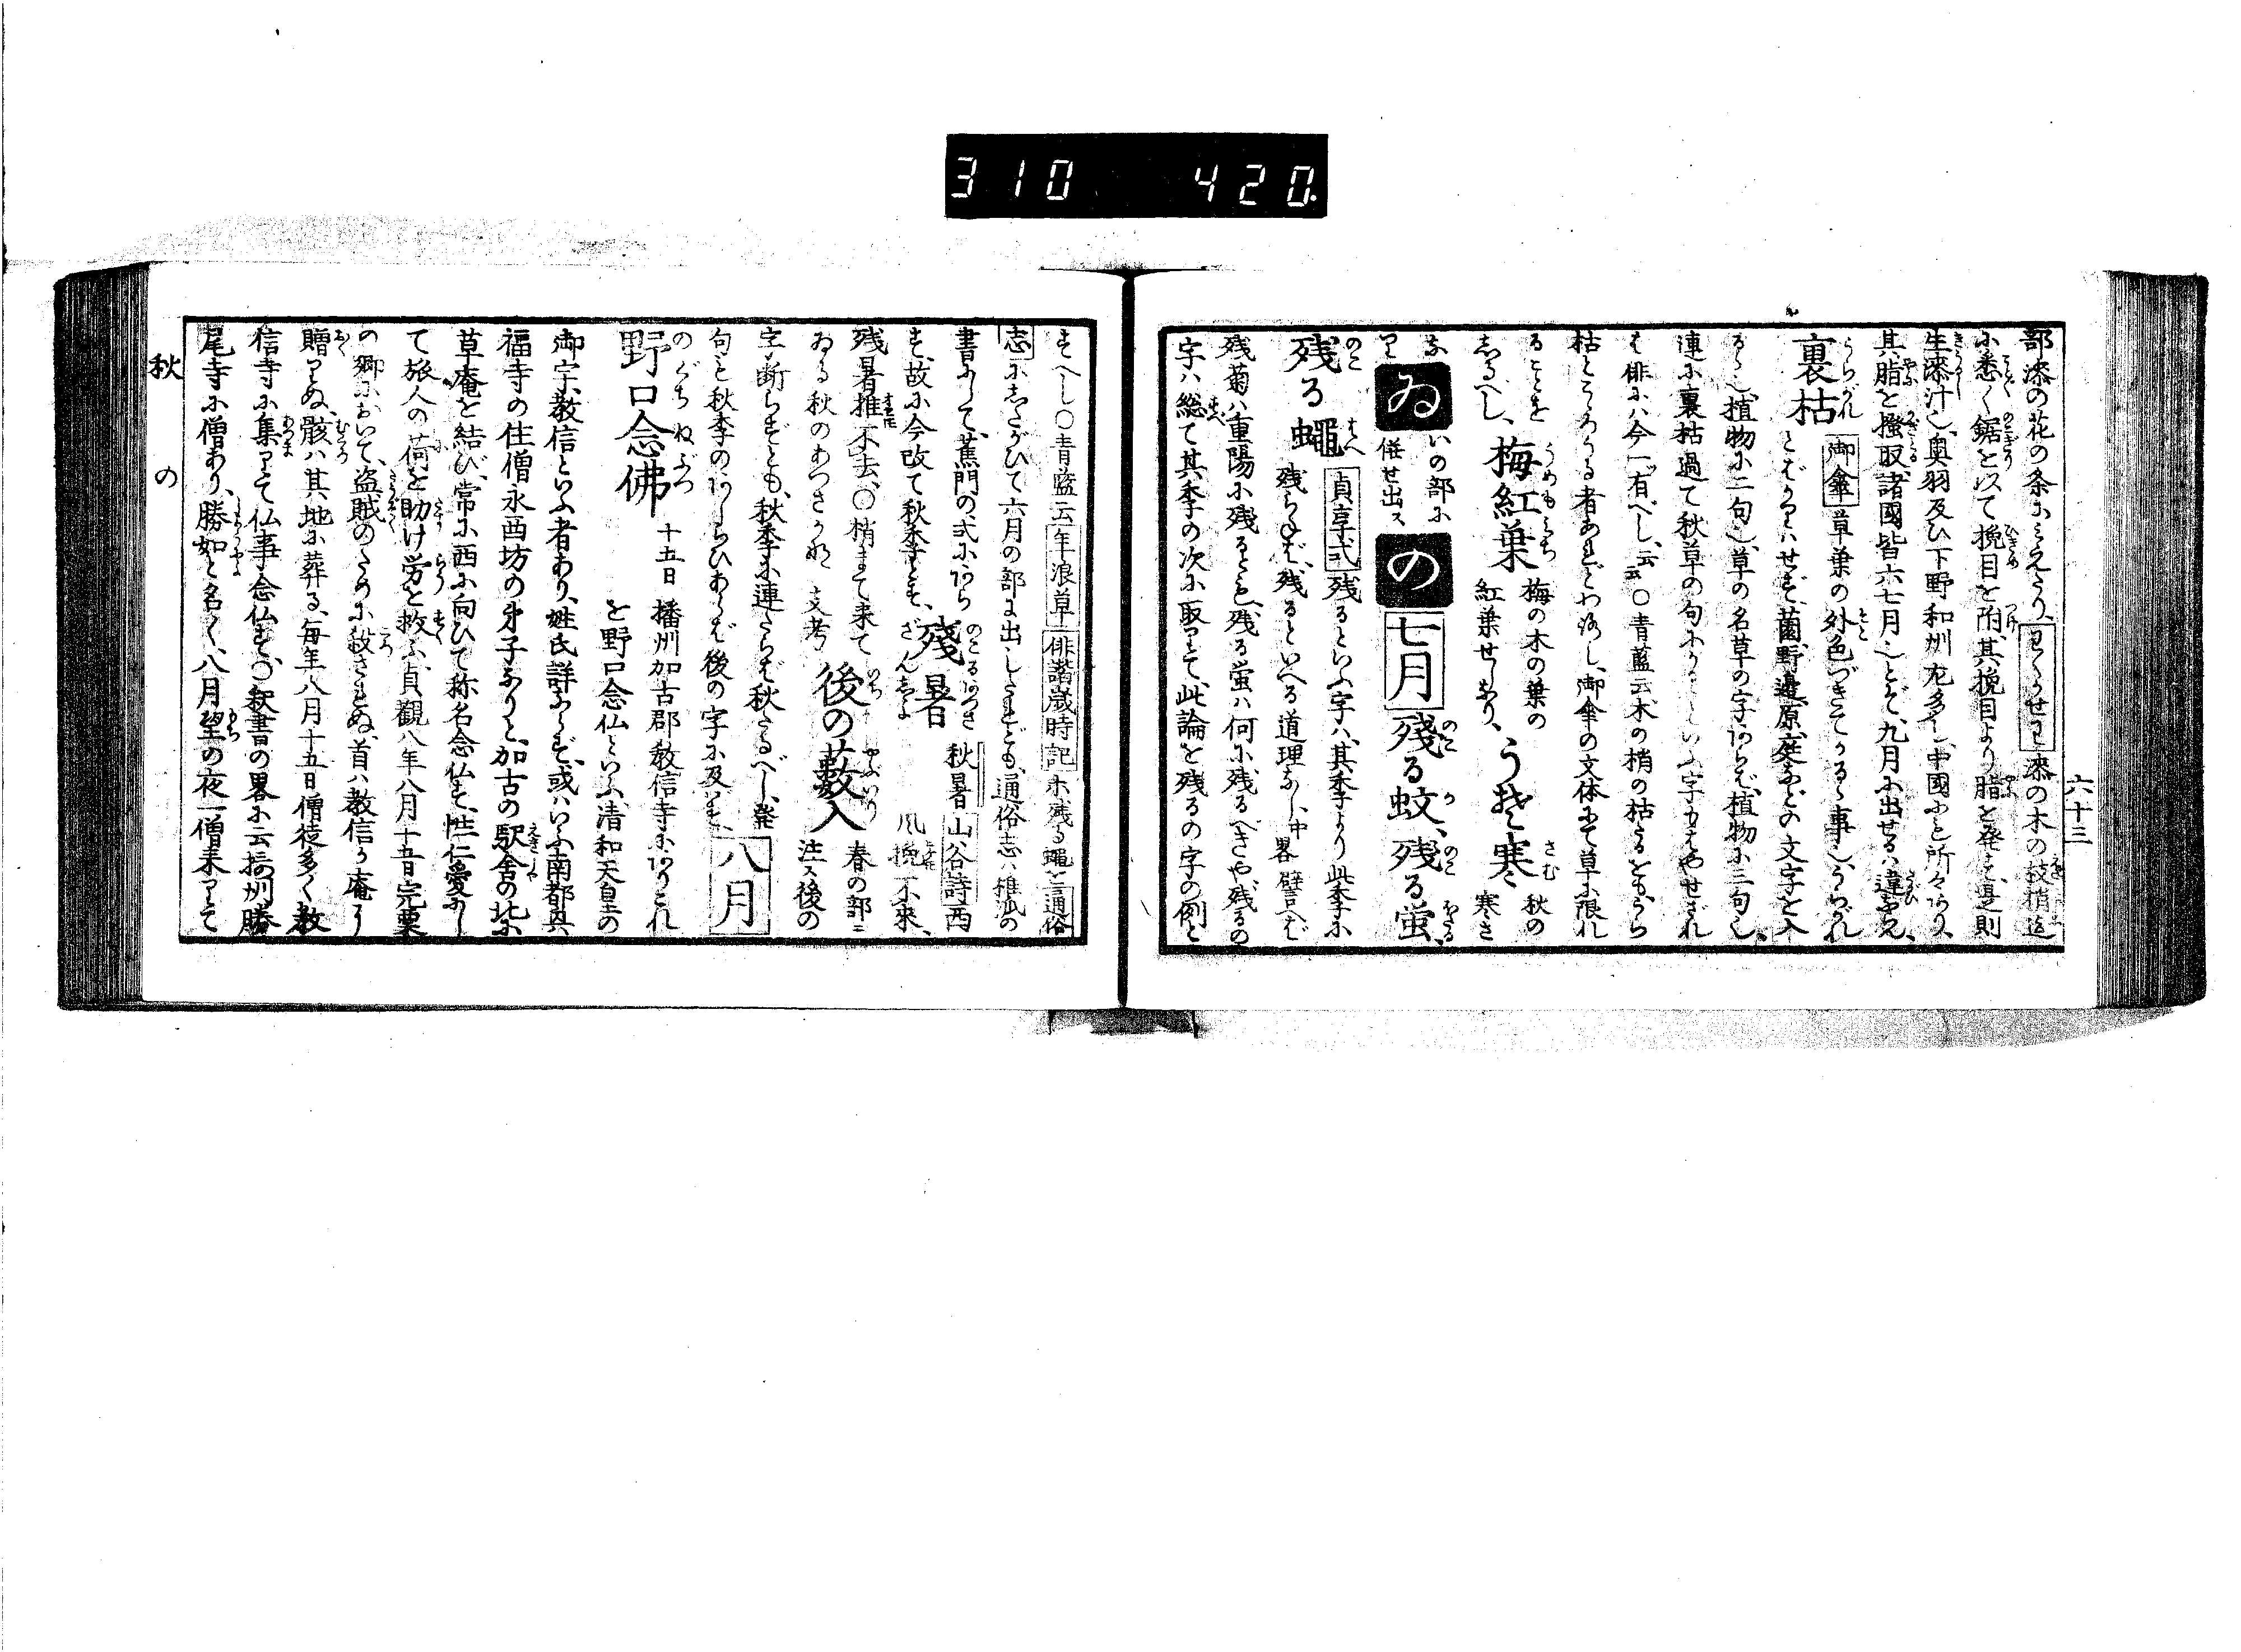 310 420
六十三
部漆の花の条にみえたり、わくらせわ漆の木の枝梢迄
に悉く鋸を以て挽目を附、其挽目より脂を発す、是則
生漆汁也、奥羽及ひ下野和州尤多し、中國にも所々あり、
其脂を掻取、諸國皆六七月也とぞ、九月に出せるハ違ふべし、
裏枯 うらがれ 御傘 草葉の外色づきてかるゝ事也、うらがれ
とばかりハせず、薗、野邊、原、庭などの文字を入
る也、植物に二句也、草の名草の字あらば、植物に三句也、
連に裏枯過て秋草の句にかるゝといふ字かなやせざれ
ど俳にハ今一ッ有べし、云云○青藍云木の梢の枯るをも、うら
枯とこゝろうる者あれどわろし、御傘の文体にて草に限れ
ることを
しるべし、 梅紅葉 うめもみぢ 梅の木の葉の
紅葉せしなり、 うそ寒 さむ 秋の
寒さ
なり ゐ いの部に
併せ出ス の 七月 残る蚊、残る蛍、
残る蠅 貞享式 残るといふ字ハ、其季より此季に
残らねば、残るといへる道理なし、中畧譬へば
残菊ハ重陽に残るとも、残る蛍ハ何に残るべきや残るの
字ハ総て其季の次に取りて、此論を残るの字の例と
すへし○青藍云年浪草 俳諧歳時記 に残る蠅を通俗
志にしたがひて六月の部に出したれども、通俗志ハ推附の
書にして、蕉門の式にあら
ず、故に今改て秋季とす、 残暑 のこるあつさ ざんしよ 秋暑 山谷詩 西
風挽不來、
残暑推不去、○梢まて来て
ゐる秋のあつさかな 支考 後の藪入 のちのやぶいり 春の部ニ
注ス後の
字断らずとも、秋季に連たらば秋たるべし、発
句を秋季のあしらひあらば後の字に及ばず、 八月
野口念佛 のぐちねぶつ 十五日 播州加古郡教信寺にありこれ
を野口念仏といふ、清和天皇の
御宇、教信といふ者あり、姓氏詳ならず、或ハいふ南都興
福寺の住僧永西坊の弟子なりと、加古の駅舎の北に
草庵を結び、常に西に向ひて称名念仏す、性仁愛にし
て旅人の荷を助け労を救ふ、貞観八年八月十五日宍粟
の郷において、盗賊のために殺されぬ、首ハ教信が庵に
贈りぬ、骸ハ其地に葬る、毎年八月十五日僧徒多く教
信寺に集りて仏事念仏す、○釈書の畧に云摂州勝
尾寺に僧あり、勝如と名く、八月望の夜一僧来りて
秋 の